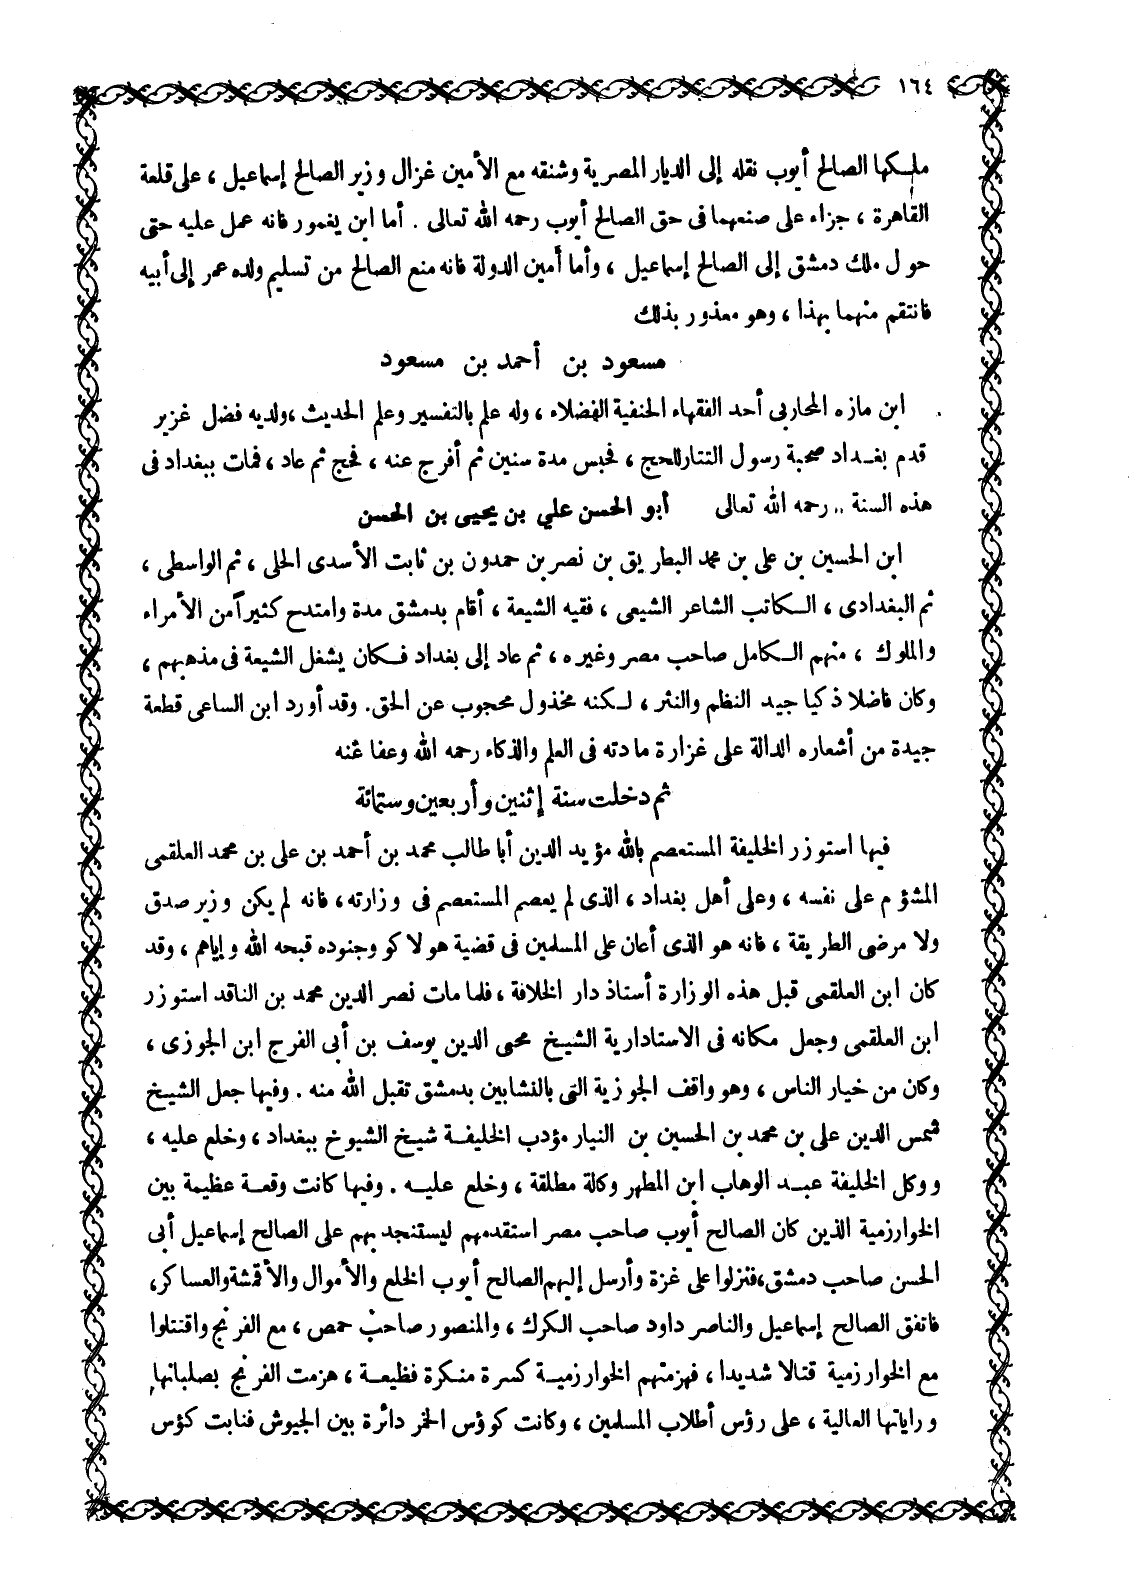 ١٦٤
ملكها الصالح أيوب نقله إلى الديار المصرية وشنقه مع الأمين غزال وزير الصالح إسماعيل ، على قلعة
القاهرة ، جزاء على صنعهما فى حق الصالح أيوب رحمه الله تعالى . أما ابن يغمور فانه عمل عليه حتى
حول ملك دمشق إلى الصالح إسماعيل ، وأما أمين الدولة فانه منع الصالح من تسليم ولده عمر إلى أبيه
فانتقم منهما بهذا ، وهو معذور بذلك
مسعود بن أحمد بن مسعود
ابن مازه المحاربى أحد الفقهاء الحنفية الفضلاء ، وله علم بالتفسير وعلم الحديث ، ولديه فضل غزير
قدم بغداد صحبة رسول التتار للحج ، فحبس مدة سنين ثم أفرج عنه ، فحج ثم عاد ، فمات ببغداد فى
هذه السنة .. رحمه الله تعالى أبو الحسن علي بن يحيى بن الحسن
ابن الحسين بن على بن محمد البطريق بن نصر بن حمدون بن ثابت الأسدى الحلى ، ثم الواسطى ،
ثم البغدادى ، الكاتب الشاعر الشيعى ، فقيه الشيعة ، أقام بدمشق مدة وامتدح كثيراً من الأمراء
والملوك ، منهم الكامل صاحب مصر وغيره ، ثم عاد إلى بغداد فكان يشغل الشيعة فى مذهبهم ،
وكان فاضلا ذكيا جيد النظم والنثر ، لكنه مخذول محجوب عن الحق. وقد أورد ابن الساعى قطعة
جيدة من أشعاره الدالة على غزارة مادته فى العلم والذكاء رحمه الله وعفا عنه
ثم دخلت سنة إثنين وأربعين وستمائة
فيها استوزر الخليفة المستعصم بالله مؤيد الدين أبا طالب محمد بن أحمد بن على بن محمد العلقمى
المشؤم على نفسه ، وعلى أهل بغداد ، الذى لم يعصم المستعصم فى وزارته ، فانه لم يكن وزير صدق
ولا مرضى الطريقة ، فانه هو الذى أعان على المسلمين فى قضية هولاكو وجنوده قبحه الله وإياهم ، وقد
كان ابن العلقمى قبل هذه الوزارة أستاذ دار الخلافة ، فلما مات نصر الدين محمد بن الناقد استوزر
ابن العلقمى وجعل مكانه فى الاستادارية الشيخ محيى الدين يوسف بن أبى الفرج ابن الجوزى ،
وكان من خيار الناس ، وهو واقف الجوزية التى بالنشابين بدمشق تقبل الله منه . وفيها جعل الشيخ
شمس الدين على بن محمد بن الحسين بن النيار مؤدب الخليفة شيخ الشيوخ ببغداد ، وخلع عليه ،
ووكل الخليفة عبد الوهاب ابن المطهر وكالة مطلقة ، وخلع عليه . وفيها كانت وقعة عظيمة بين
الخوارزمية الذين كان الصالح أيوب صاحب مصر استقدمهم ليستنجد بهم على الصالح إسماعيل أبى
الحسن صاحب دمشق، فنزلوا على غزة وأرسل إليهم الصالح أيوب الخلع والأموال والأقمشة والعساكر،
فاتفق الصالح إسماعيل والناصر داود صاحب الكرك ، والمنصور صاحب حمص ، مع الفرنج واقتتلوا
مع الخوارزمية قتالا شديدا ، فهزمتهم الخوارزمية كسرة منكرة فظيعة ، هزمت الفرنج بصلبانها
وراياتها العالية ، على رؤس أطلاب المسلمين ، وكانت كؤس الخمر دائرة بين الجيوش فنابت كؤس